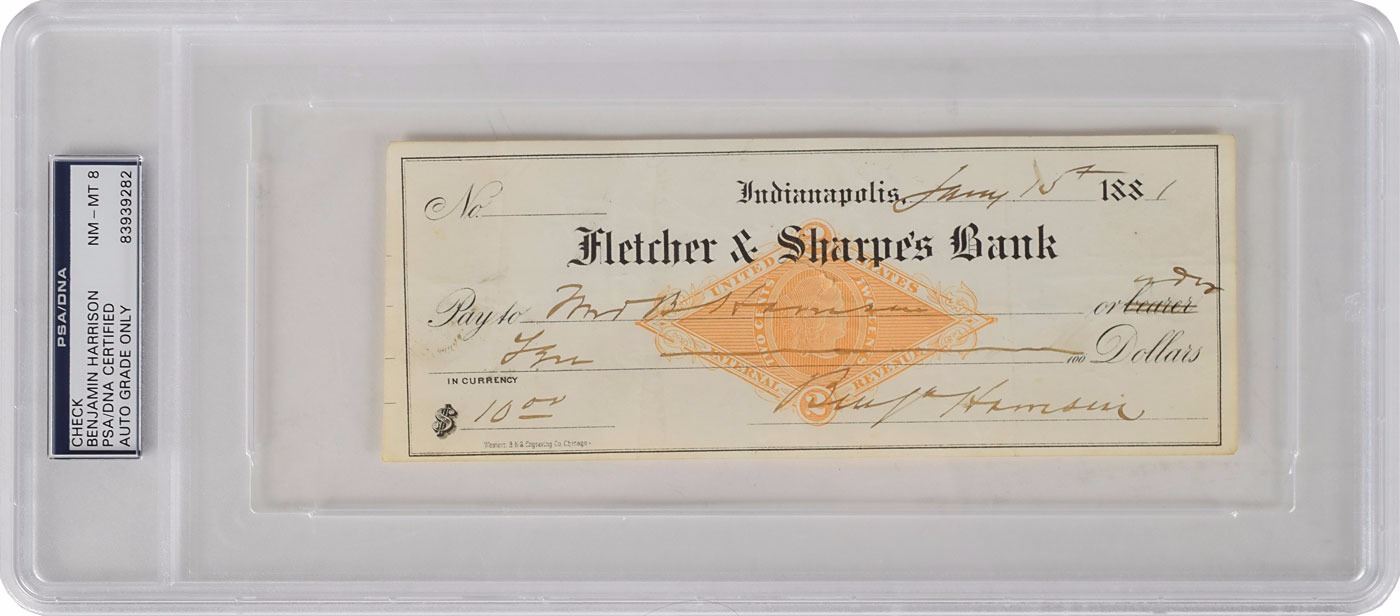 PSA/DNA
CHECK NM - MT 8
BENJAMIN HARRISON
PSA/DNA CERTIFIED
AUTO GRADE ONLY 83939282
No. Indianapolis, Jany 15th 1881
Fletcher & Sharpe's Bank
UNITED STATES
INTERNAL REVENUE
TWO CENTS
2
Pay to Mrs B Harrison or bearer order
Ten /100 Dollars
IN CURRENCY
$ 10 00 Benj Harrison
Western B.N.& Engraving Co. Chicago.